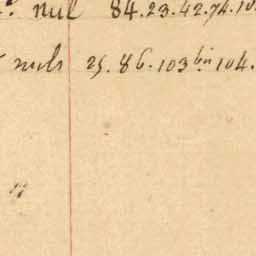 nul 84.23.42.74.10
nuls 25.86.103 bis 104.
"